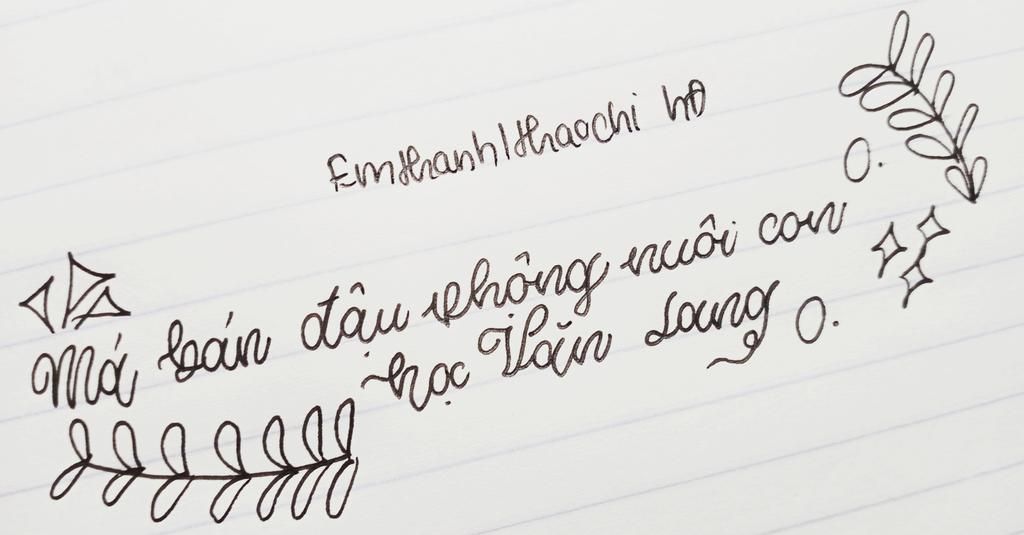 Emthanh1thaochi hộ
Má bán đậu phộng nuôi con
học Văn Lang